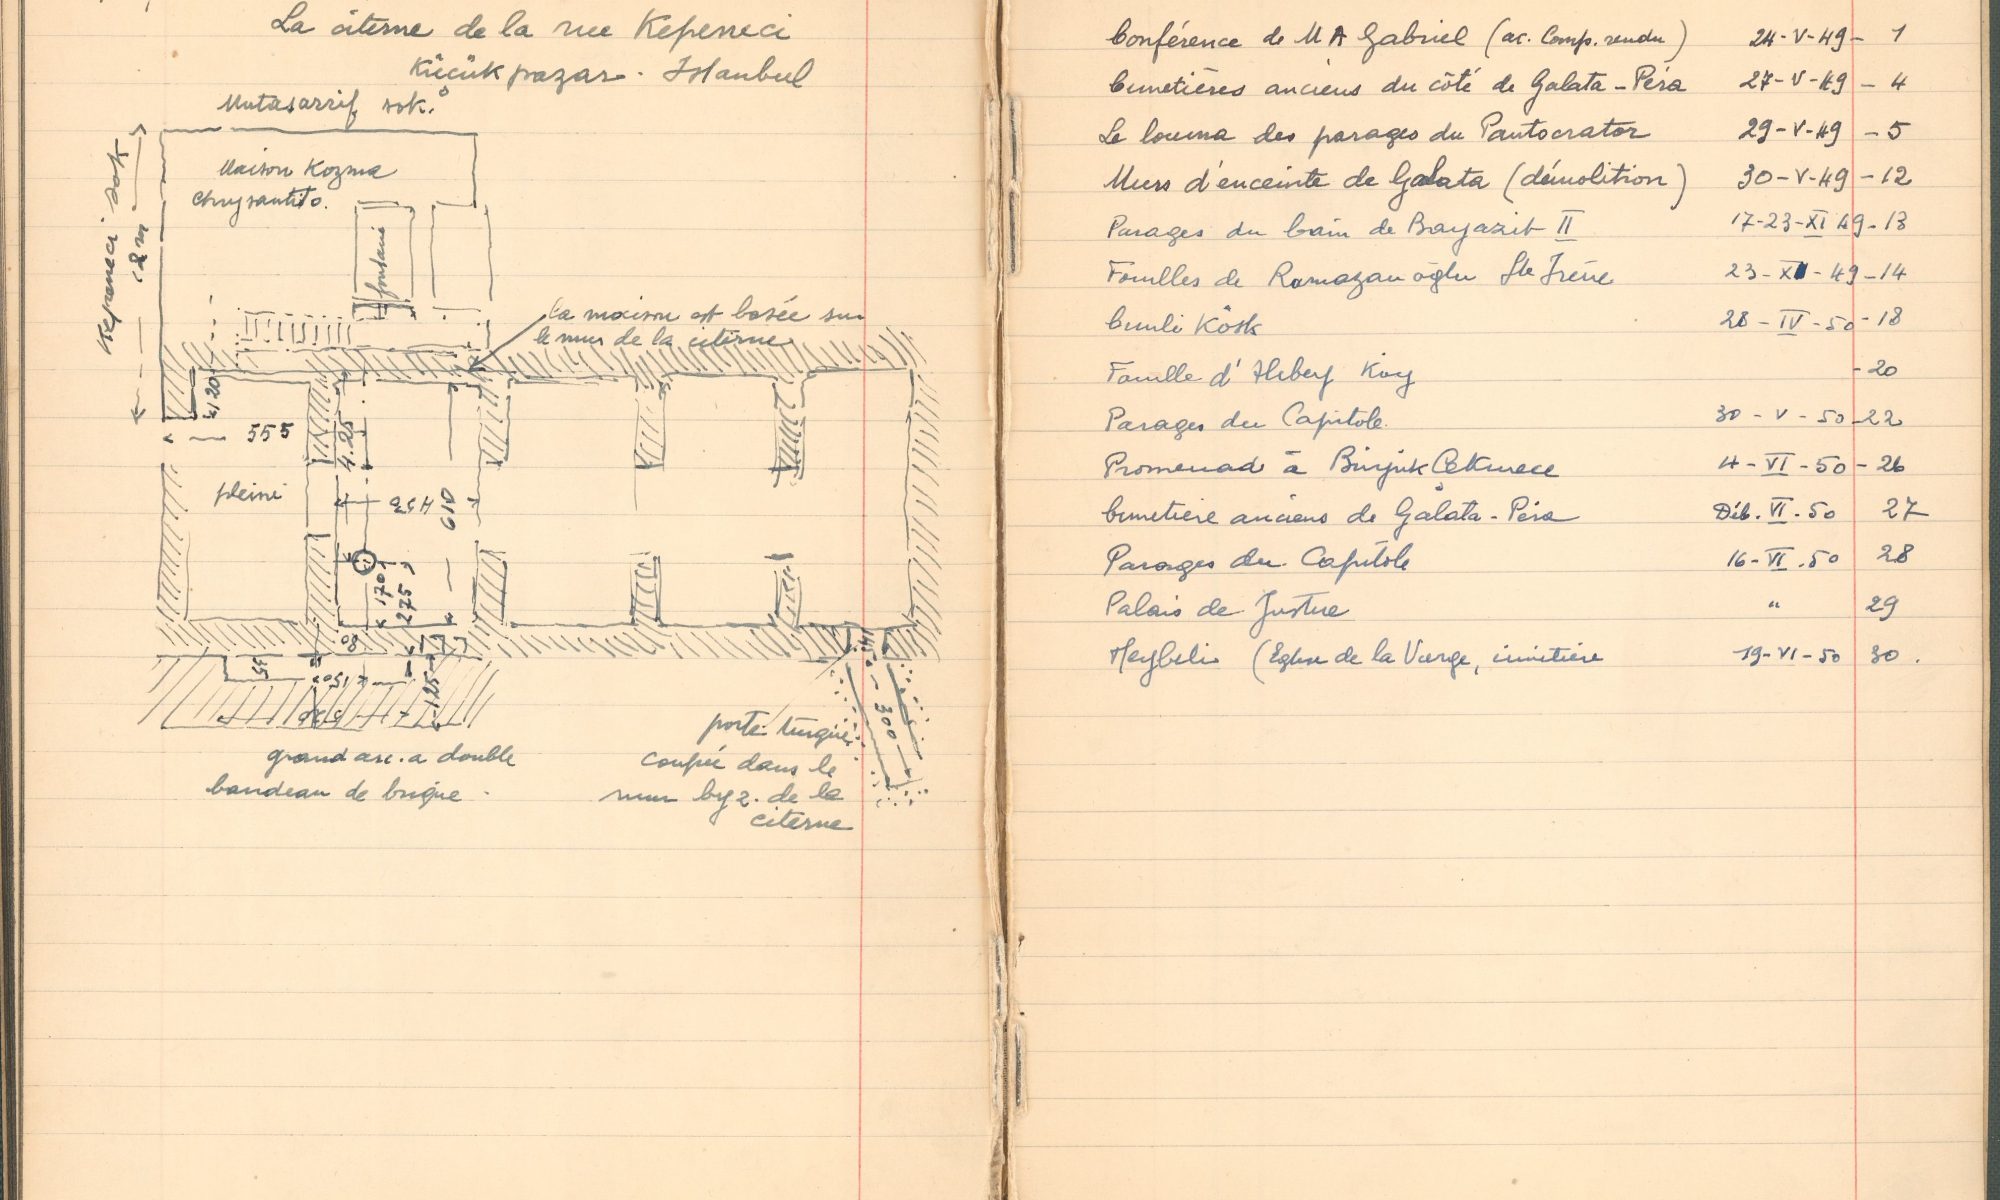 La citerne de la rue Kepeneci
Küçük pazar. Istanbul
Mutasarrif sok.
Kepeneci sok
12 m
Maison Kozma
Chrysantito.
fontaine
la maison est basée sur
le mur de la citerne
120
555
4.25
pleine
435
610
170
275
80
55
150
125
145
300
grand arc. a double
bandeau de brique
porte turque
coupée dans le
mur byz. de la
citerne
Conférence de M A Gabriel (ac. Comp. rendu) 24-V-49 - 1
Cimetières anciens du côté de Galata-Péra 27-V-49 - 4
Le louma des parages du Pantocrator 29-V-49 - 5
Murs d'enceinte de Galata (démolition) 30-V-49 - 12
Parages du bain de Bayazit II 17-23-XI 49 - 13
Fouilles de Ramazan oğlu Ste Irène 23-XII-49 - 14
Cumli Kösk 28-IV-50 - 18
Fouille d' Köy - 20
Parages du Capitole. 30-V-50 - 22
Promenad à Büyük Çekmece 4-VI-50 - 26
Cimetière anciens de Galata-Péra Déb. VI. 50 27
Parages du Capitole 16-VI.50 28
Palais de Justice " 29
Heybeli (Eglise de la Vierge, cimetière 19-VI-50 30.